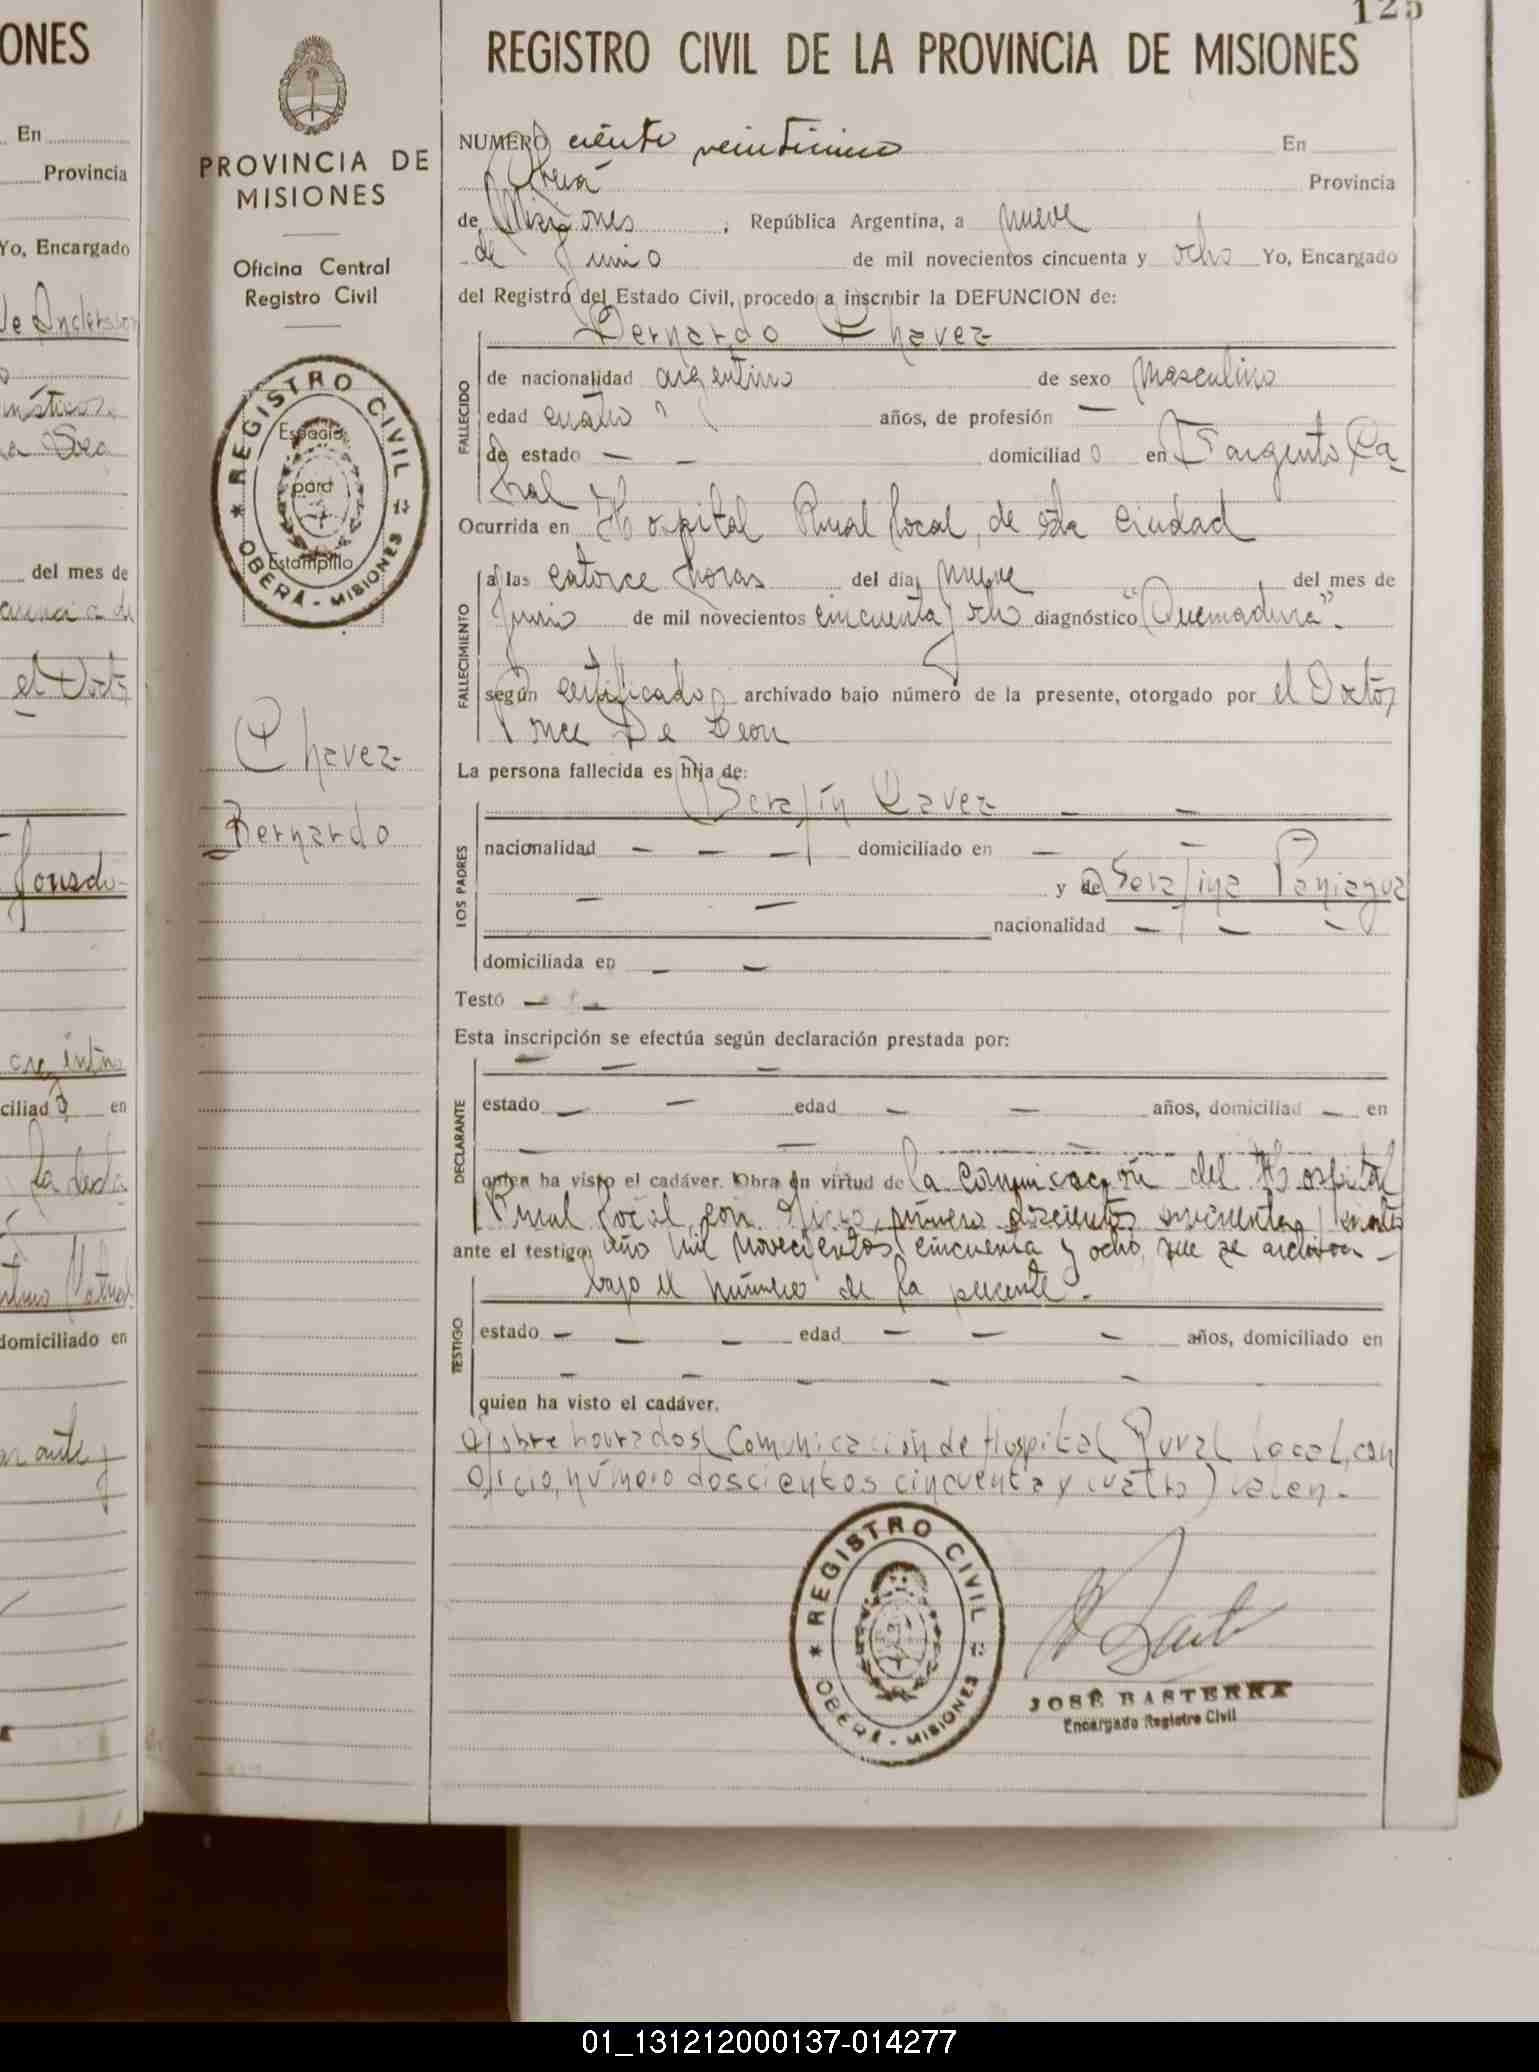 125
ONES
En
Provincia
Yo, Encargado
de Anderson
del mes de
el Doctor
ciliado en
domiciliado en
PROVINCIA DE
MISIONES
Oficina Central
Registro Civil
REGISTRO CIVIL
Espacio
para
Estampilla
OBERÁ - MISIONES
Chavez
Bernardo
REGISTRO CIVIL DE LA PROVINCIA DE MISIONES
NUMERO ciento veinticinco En
Oberá Provincia
de Misiones, República Argentina, a nueve
de Junio de mil novecientos cincuenta y ocho Yo, Encargado
del Registro del Estado Civil, procedo a inscribir la DEFUNCION de:
Bernardo Chavez
FALLECIDO
de nacionalidad argentino de sexo masculino
edad cuatro años, de profesión —
de estado — — domiciliado en Sargento Ca-
bral
Ocurrida en Hospital Rural local, de esta ciudad
FALLECIMIENTO
a las catorce horas del día nueve del mes de
Junio de mil novecientos cincuenta y ocho diagnóstico "Quemadura".
según certificado archivado bajo número de la presente, otorgado por el Doctor
Ponce De Leon
La persona fallecida es hija de:
LOS PADRES
Serafín Cavez — —
nacionalidad — — — domiciliado en — —
— — y de Serafina Paniagua
nacionalidad — — —
domiciliada en — —
Testó — —
Esta inscripción se efectúa según declaración prestada por:
DECLARANTE
— — —
estado — — edad — — años, domiciliad — en
— —
quien ha visto el cadáver. Obra en virtud de la comunicación del Hospital
Rural local, con oficio, número doscientos cincuenta y cuatro
ante el testigo: año mil novecientos cincuenta y ocho, que se archiva —
bajo el número de la presente.-
TESTIGO
estado — — — edad — — — años, domiciliado en
— — — — —
quien ha visto el cadáver.
Sobre borrados( Comunicación de Hospital Rural local, con
oficio, número doscientos cincuenta y cuatro) valen.-
REGISTRO CIVIL
OBERÁ - MISIONES
JOSÉ BASTERRA
Encargado Registro Civil
01_131212000137-014277